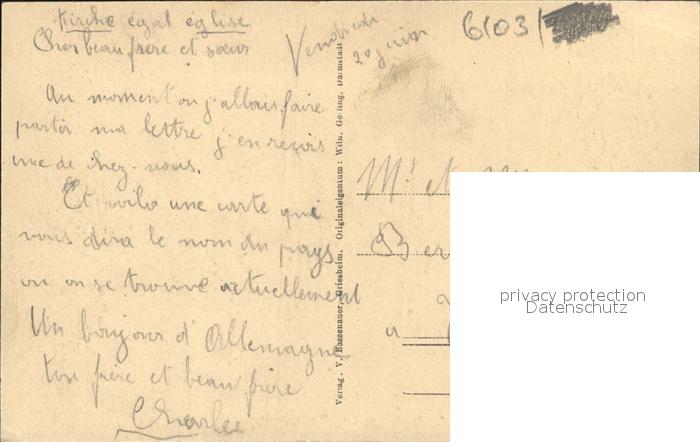 Kirche égal église
Cher beau frère et sœur
Vendredi
20 juin
6103/
Au moment ou j'allais faire
partir ma lettre j'en reçois
une de chez-nous.
Et voila une carte qui
vous dira le nom du pays
ou on se trouve actuellement
Un bonjour d'Allemagne
ton frère et beau frère
Charles
Verlag. V. Bassenauer, Griesheim. Originaleigentum: Wilh. Gerling, Darmstadt
Mr et
Ber
a
privacy protection
Datenschutz